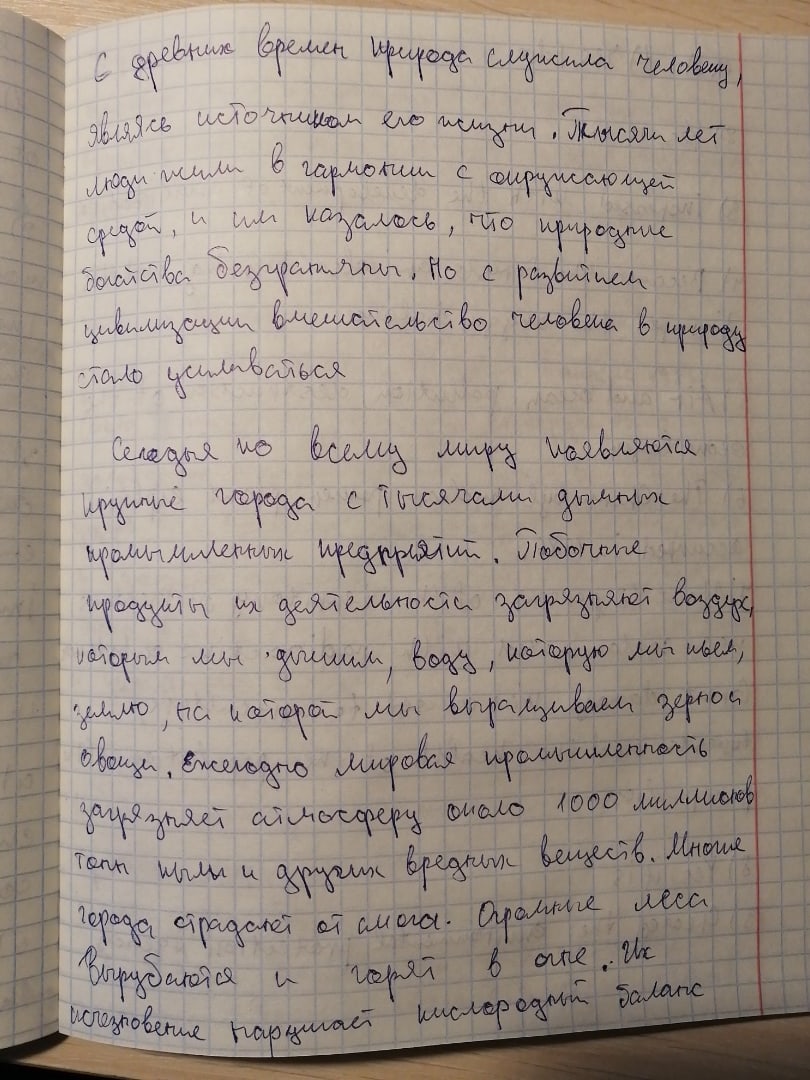 С древних времен природа служила человеку,
являясь источником его жизни. Тысячи лет
люди жили в гармонии с окружающей
средой, и им казалось, что природные
богатства безграничны. Но с развитием
цивилизации вмешательство человека в природу
стало усиливаться
Сегодня по всему миру появляются
крупные города с тысячами дымных
промышленных предприятий. Побочные
продукты их деятельности загрязняют воздух,
которым мы дышим, воду, которую мы пьем,
землю, на которой мы выращиваем зерно и
овощи. Ежегодно мировая промышленность
загрязняет атмосферу около 1000 миллионов
тонн пыли и других вредных веществ. Многие
города страдают от смога. Огромные леса
вырубаются и горят в огне. Их
исчезновение нарушает кислородный баланс